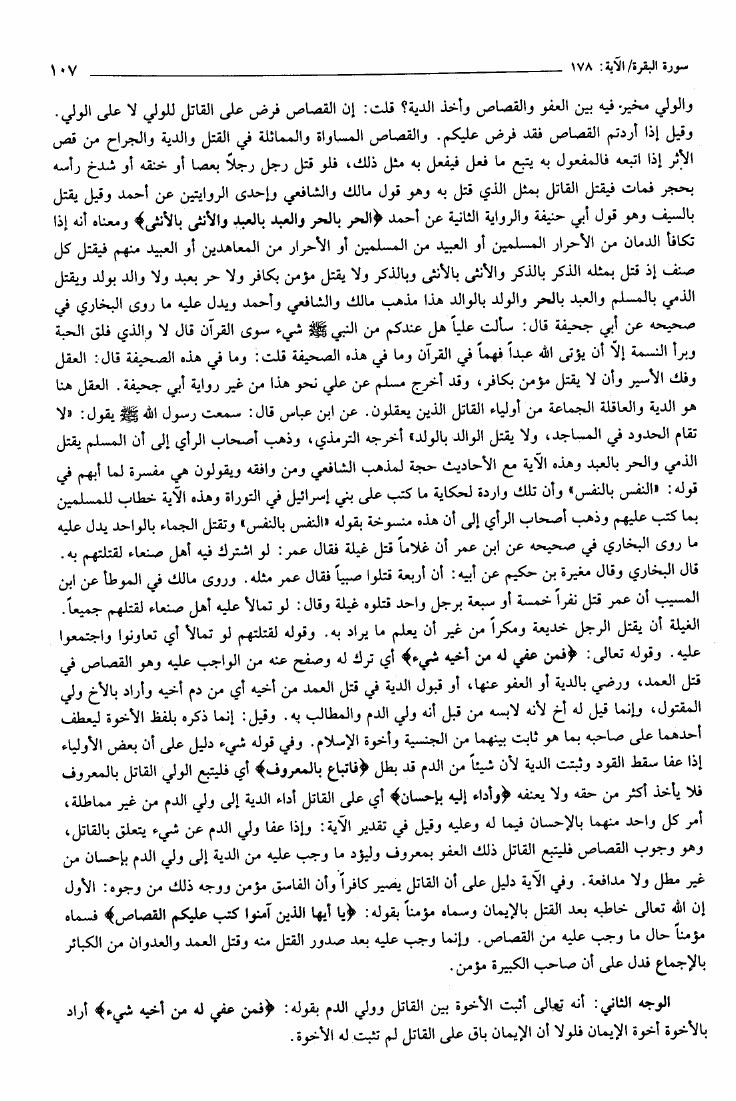 سورة البقرة/ الآية: ١٧٨
١٠٧
والولي مخير فيه بين العفو والقصاص وأخذ الدية؟ قلت: إن القصاص فرض على القاتل للولي لا على الولي.
وقيل إذا أردتم القصاص فقد فرض عليكم. والقصاص المساواة والمماثلة في القتل والدية والجراح من قص
الأثر إذا اتبعه فالمفعول به يتبع ما فعل فيفعل به مثل ذلك، فلو قتل رجل رجلاً بعصا أو خنقه أو شدخ رأسه
بحجر فمات فيقتل القاتل بمثل الذي قتل به وهو قول مالك والشافعي وإحدى الروايتين عن أحمد وقيل يقتل
بالسيف وهو قول أبي حنيفة والرواية الثانية عن أحمد ﴿الحر بالحر والعبد بالعبد والأنثى بالأنثى﴾ ومعناه أنه إذا
تكافأ الدمان من الأحرار المسلمين أو العبيد من المسلمين أو الأحرار من المعاهدين أو العبيد منهم فيقتل كل
صنف إذ قتل بمثله الذكر بالذكر والأنثى بالأنثى وبالذكر ولا يقتل مؤمن بكافر ولا حر بعبد ولا والد بولد ويقتل
الذمي بالمسلم والعبد بالحر والولد بالوالد هذا مذهب مالك والشافعي وأحمد ويدل عليه ما روى البخاري في
صحيحه عن أبي جحيفة قال: سألت علياً هل عندكم من النبي ﷺ شيء سوى القرآن قال لا والذي فلق الحبة
وبرأ النسمة إلاّ أن يؤتى الله عبداً فهماً في القرآن وما في هذه الصحيفة قلت: وما في هذه الصحيفة قال: العقل
وفك الأسير وأن لا يقتل مؤمن بكافر، وقد أخرج مسلم عن علي نحو هذا من غير رواية أبي جحيفة. العقل هنا
هو الدية والعاقلة الجماعة من أولياء القاتل الذين يعقلون. عن ابن عباس قال: سمعت رسول الله ﷺ يقول: «لا
تقام الحدود في المساجد، ولا يقتل الوالد بالولد» أخرجه الترمذي، وذهب أصحاب الرأي إلى أن المسلم يقتل
الذمي والحر بالعبد وهذه الآية مع الأحاديث حجة لمذهب الشافعي ومن وافقه ويقولون هي مفسرة لما أبهم في
قوله: «النفس بالنفس» وأن تلك واردة لحكاية ما كتب على بني إسرائيل في التوراة وهذه الآية خطاب للمسلمين
بما كتب عليهم وذهب أصحاب الرأي إلى أن هذه منسوخة بقوله «النفس بالنفس» وتقتل الجماء بالواحد يدل عليه
ما روى البخاري في صحيحه عن ابن عمر أن غلاماً قتل غيلة فقال عمر: لو اشترك فيه أهل صنعاء لقتلتهم به.
قال البخاري وقال مغيرة بن حكيم عن أبيه: أن أربعة قتلوا صبياً فقال عمر مثله. وروى مالك في الموطأ عن ابن
المسيب أن عمر قتل نفراً خمسة أو سبعة برجل واحد قتلوه غيلة وقال: لو تمالأ عليه أهل صنعاء لقتلهم جميعاً.
الغيلة أن يقتل الرجل خديعة ومكراً من غير أن يعلم ما يراد به. وقوله لقتلتهم لو تمالأ أي تعاونوا واجتمعوا
عليه. وقوله تعالى: ﴿فمن عفي له من أخيه شيء﴾ أي ترك له وصفح عنه من الواجب عليه وهو القصاص في
قتل العمد، ورضي بالدية أو العفو عنها، أو قبول الدية في قتل العمد من أخيه أي من دم أخيه وأراد بالأخ ولي
المقتول، وإنما قيل له أخ لأنه لابسه من قبل أنه ولي الدم والمطالب به. وقيل: إنما ذكره بلفظ الأخوة ليعطف
أحدهما على صاحبه بما هو ثابت بينهما من الجنسية وأخوة الإسلام. وفي قوله شيء دليل على أن بعض الأولياء
إذا عفا سقط القود وثبتت الدية لأن شيئاً من الدم قد بطل ﴿فاتباع بالمعروف﴾ أي فليتبع الولي القاتل بالمعروف
فلا يأخذ أكثر من حقه ولا يعنفه ﴿وأداء إليه بإحسان﴾ أي على القاتل أداء الدية إلى ولي الدم من غير مماطلة،
أمر كل واحد منهما بالإحسان فيما له وعليه وقيل في تقدير الآية: وإذا عفا ولي الدم عن شيء يتعلق بالقاتل،
وهو وجوب القصاص فليتبع القاتل ذلك العفو بمعروف وليؤد ما وجب عليه من الدية إلى ولي الدم بإحسان من
غير مطل ولا مدافعة. وفي الآية دليل على أن القاتل يصير كافراً وأن الفاسق مؤمن ووجه ذلك من وجوه: الأول
إن الله تعالى خاطبه بعد القتل بالإيمان وسماه مؤمناً بقوله: ﴿يا أيها الذين آمنوا كتب عليكم القصاص﴾ فسماه
مؤمناً حال ما وجب عليه من القصاص. وإنما وجب عليه بعد صدور القتل منه وقتل العمد والعدوان من الكبائر
بالإجماع فدل على أن صاحب الكبيرة مؤمن.
الوجه الثاني: أنه تعالى أثبت الأخوة بين القاتل وولي الدم بقوله: ﴿فمن عفي له من أخيه شيء﴾ أراد
بالأخوة أخوة الإيمان فلولا أن الإيمان باق على القاتل لم تثبت له الأخوة.